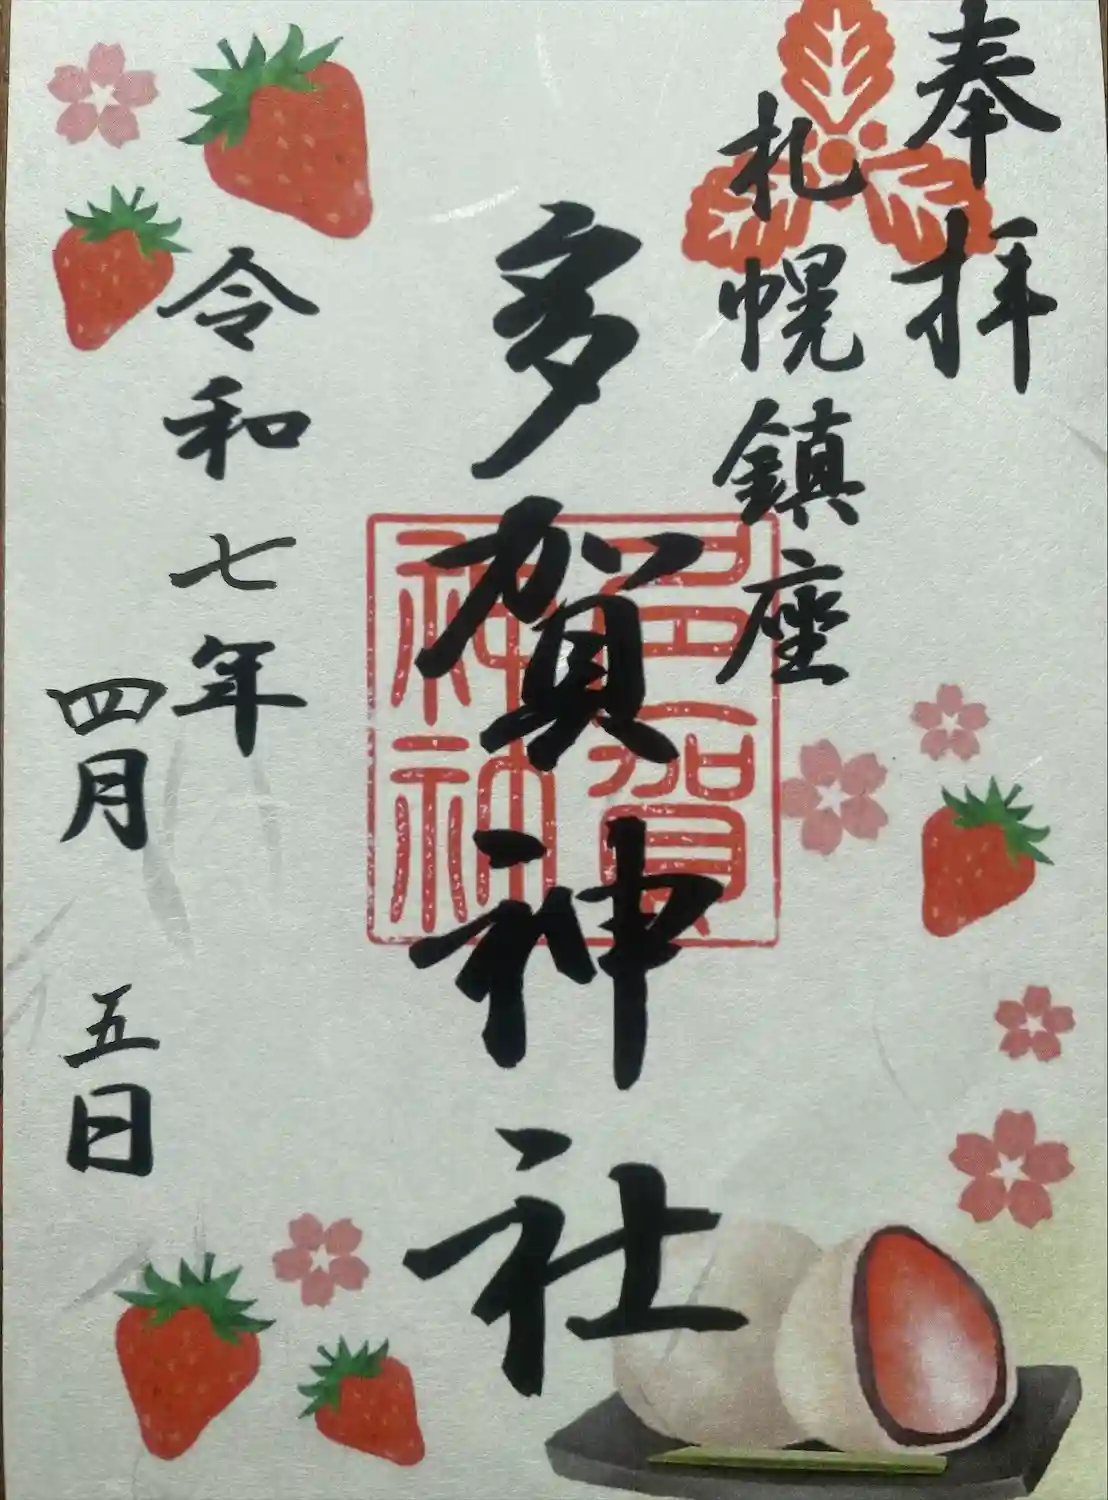 奉拝
札幌鎮座
多賀神社
令和七年
四月五日